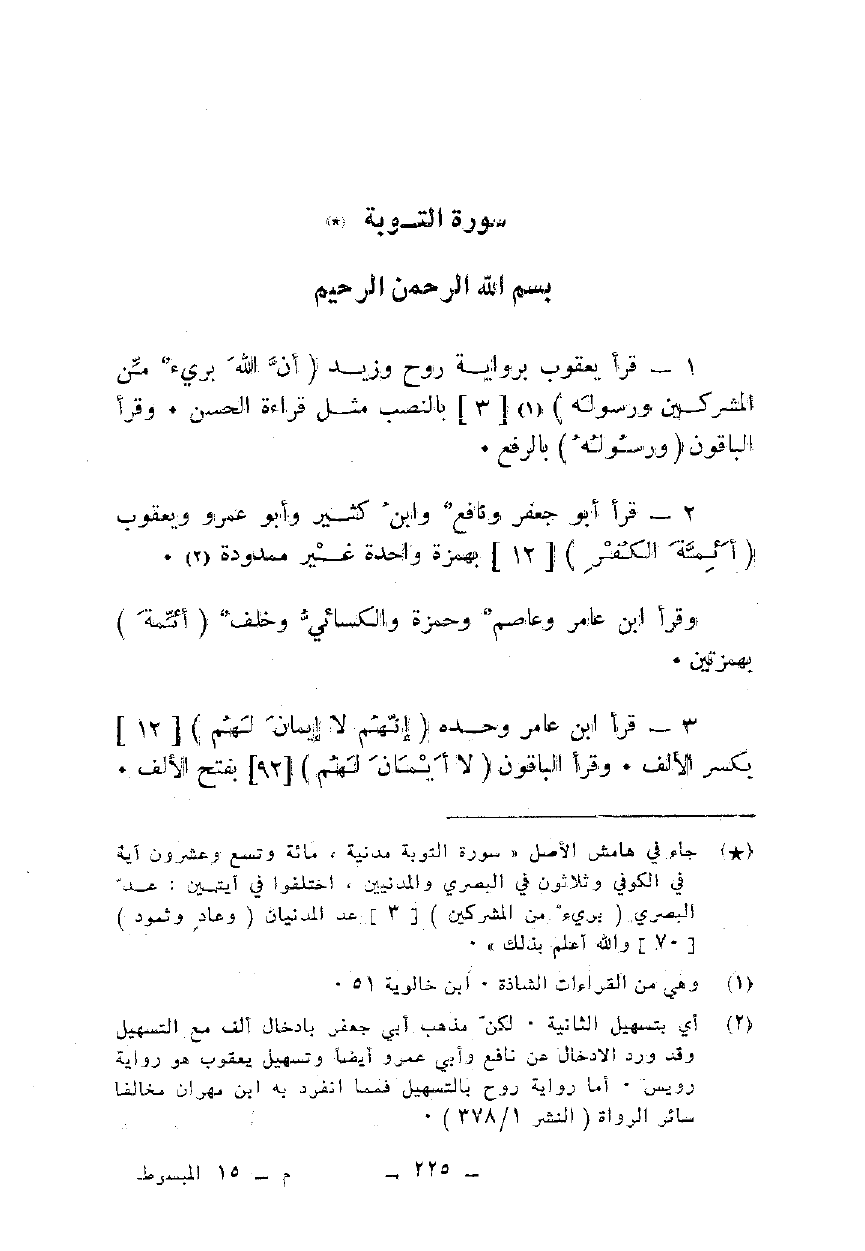 سورة التـوبة (★)
بسم الله الرحمن الرحيم
١ ــ قرأ يعقوب بروايـة روح وزيـد ( أنَّ اللهَ بريءٌ مِّن
المشركـين ورسولَه ) (١) [ ٣ ] بالنصب مثـل قراءة الحسن ٠ وقرأ
الباقون ( ورسُولُهُ ) بالرفع ٠
٢ ــ قرأ أبو جعفر ونافعٌ وابنُ كثـير وأبو عمرو ويعقوب
( أَئِمَّةَ الكُفْرِ ) [ ١٢ ] بهمزة واحدة غـيْر ممدودة (٢) ٠
وقرأ ابن عامر وعاصمٌ وحمزة والكسائيُّ وخلفٌ ( أئمّةَ )
بهمزتين ٠
٣ ــ قرأ ابن عامر وحـده ( إنّهُم لا إيمانَ لَهُم ) [ ١٢ ]
بكسر الألف ٠ وقرأ الباقون ( لا أَيْمَانَ لَهُم ) [٩٢] بفتح الألف ٠
(★) جاء في هامش الأصل « سورة التوبة مدنية ، مائة وتسع وعشرون آية
في الكوفي وثلاثون في البصري والمدنيين ، اختلفوا في آيتـين : عـدَّ
البصري ( بريءٌ من المشركين ) [ ٣ ] عد المدنيان ( وعادٍ وثمود )
[ ٧٠ ] والله أعلم بذلك » ٠
(١) وهي من القراءات الشاذة ٠ ابن خالوية ٥١ ٠
(٢) أي بتسهيل الثانية ٠ لكنّ مذهب أبي جعفر بادخال ألف مع التسهيل
وقد ورد الادخال عن نافع وأبي عمرو أيضاً وتسهيل يعقوب هو رواية
رويس ٠ أما رواية روح بالتسهيل فمما انفرد به ابن مهران مخالفا
سائر الرواة ( النشر ٣٧٨/١ ) ٠
ــ ٢٢٥ ــ م ــ ١٥ المبسوط